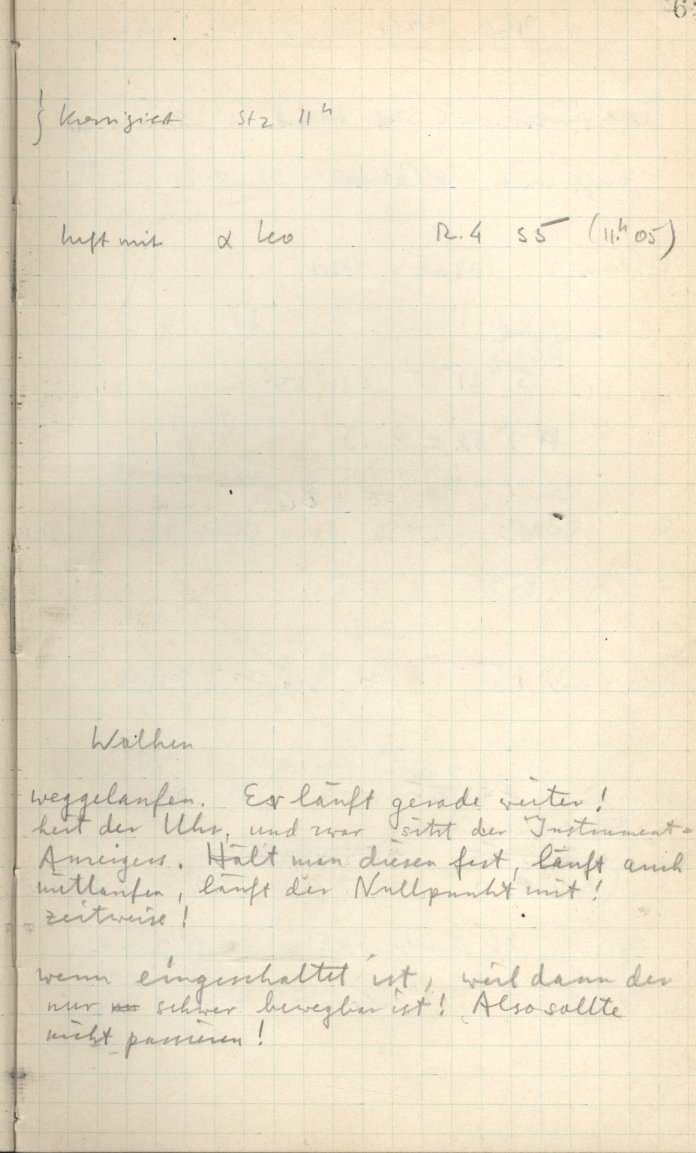 6
} Korrigiert Stz 11ʰ
heft mit α Leo R. 4 55 (11.ʰ 05)
Wolken
weggelaufen. Er läuft gerade weiter!
heit der Uhr, und zwar sitzt der Instrument-
Anzeigers. Hält man diesen fest, läuft auch
mitlaufen, läuft der Nullpunkt mit!
zeitweise!
wenn eingeschaltet ist, weil dann der
nur schwer bewegbar ist! Also sollte
nicht passieren!